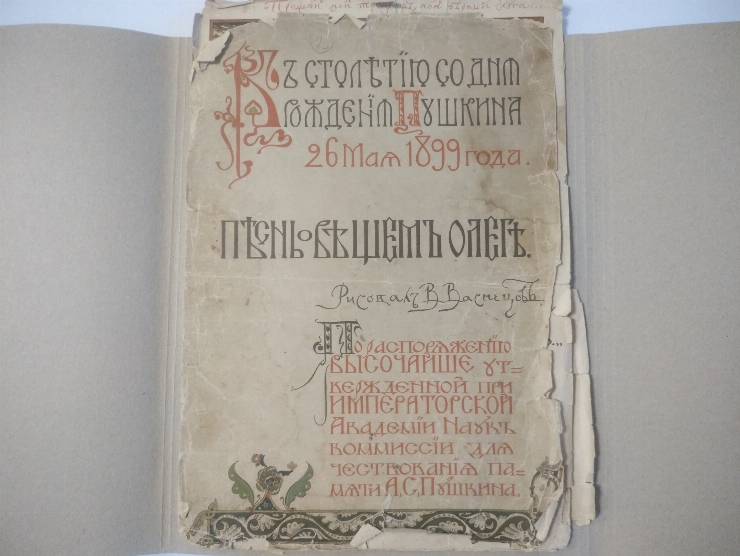 Къ столѣтію со дня
рожденія Пушкина
26 Мая 1899 года.
Пѣснь о Вѣщемъ Олегѣ.
Рисовалъ В. Васнецовъ
По распоряженію
ВЫСОЧАЙШЕ ут=
вержденной при
ИМПЕРАТОРСКОЙ
Академіи Наукъ
коммиссіи для
чествованія па=
мяти А.С. Пушкина.